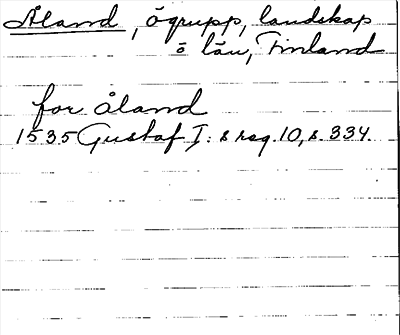 Åland, ögrupp, landskap
o län, Finland
for åland
1535 Gustaf I:s reg. 10, s. 334.